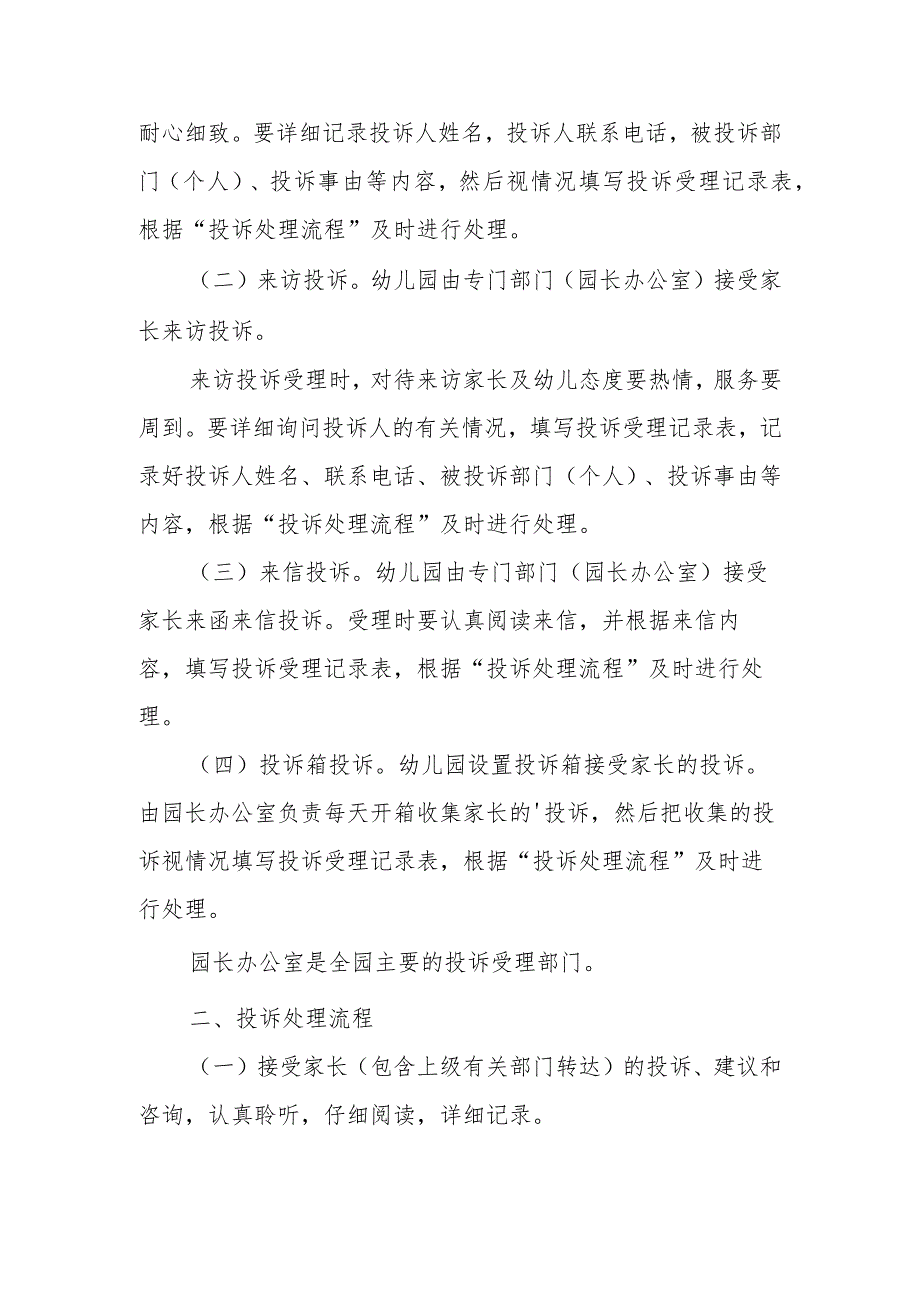 耐心细致。要详细记录投诉人姓名，投诉人联系电话，被投诉部
门（个人）、投诉事由等内容，然后视情况填写投诉受理记录表，
根据“投诉处理流程”及时进行处理。
（二）来访投诉。幼儿园由专门部门（园长办公室）接受家
长来访投诉。
来访投诉受理时，对待来访家长及幼儿态度要热情，服务要
周到。要详细询问投诉人的有关情况，填写投诉受理记录表，记
录好投诉人姓名、联系电话、被投诉部门（个人）、投诉事由等
内容，根据“投诉处理流程”及时进行处理。
（三）来信投诉。幼儿园由专门部门（园长办公室）接受
家长来函来信投诉。受理时要认真阅读来信，并根据来信内
容，填写投诉受理记录表，根据“投诉处理流程”及时进行处
理。
（四）投诉箱投诉。幼儿园设置投诉箱接受家长的投诉。
由园长办公室负责每天开箱收集家长的'投诉，然后把收集的投
诉视情况填写投诉受理记录表，根据“投诉处理流程”及时进
行处理。
园长办公室是全园主要的投诉受理部门。
二、投诉处理流程
（一）接受家长（包含上级有关部门转达）的投诉、建议和
咨询，认真聆听，仔细阅读，详细记录。